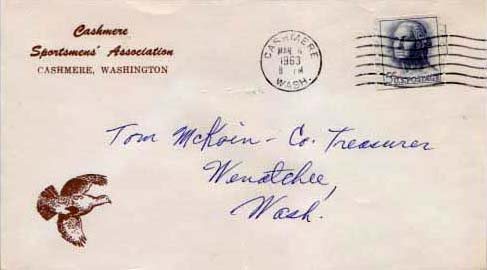 Cashmere
Sportsmens' Association
CASHMERE, WASHINGTON
CASHMERE
MAR
1963
PM
WASH.
Tom McKoin - Co. Treasurer
Wenatchee,
Wash.